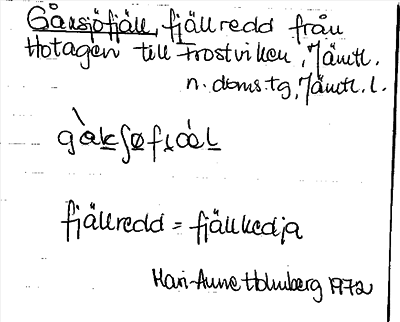 Gåksjöfjäll, fjällredd från
Hotagen till Frostviken, Jämtl.
n. doms.tg, Jämtl. l.
fjällredd = fjällkedja
Mari-Anne Holmberg 1972